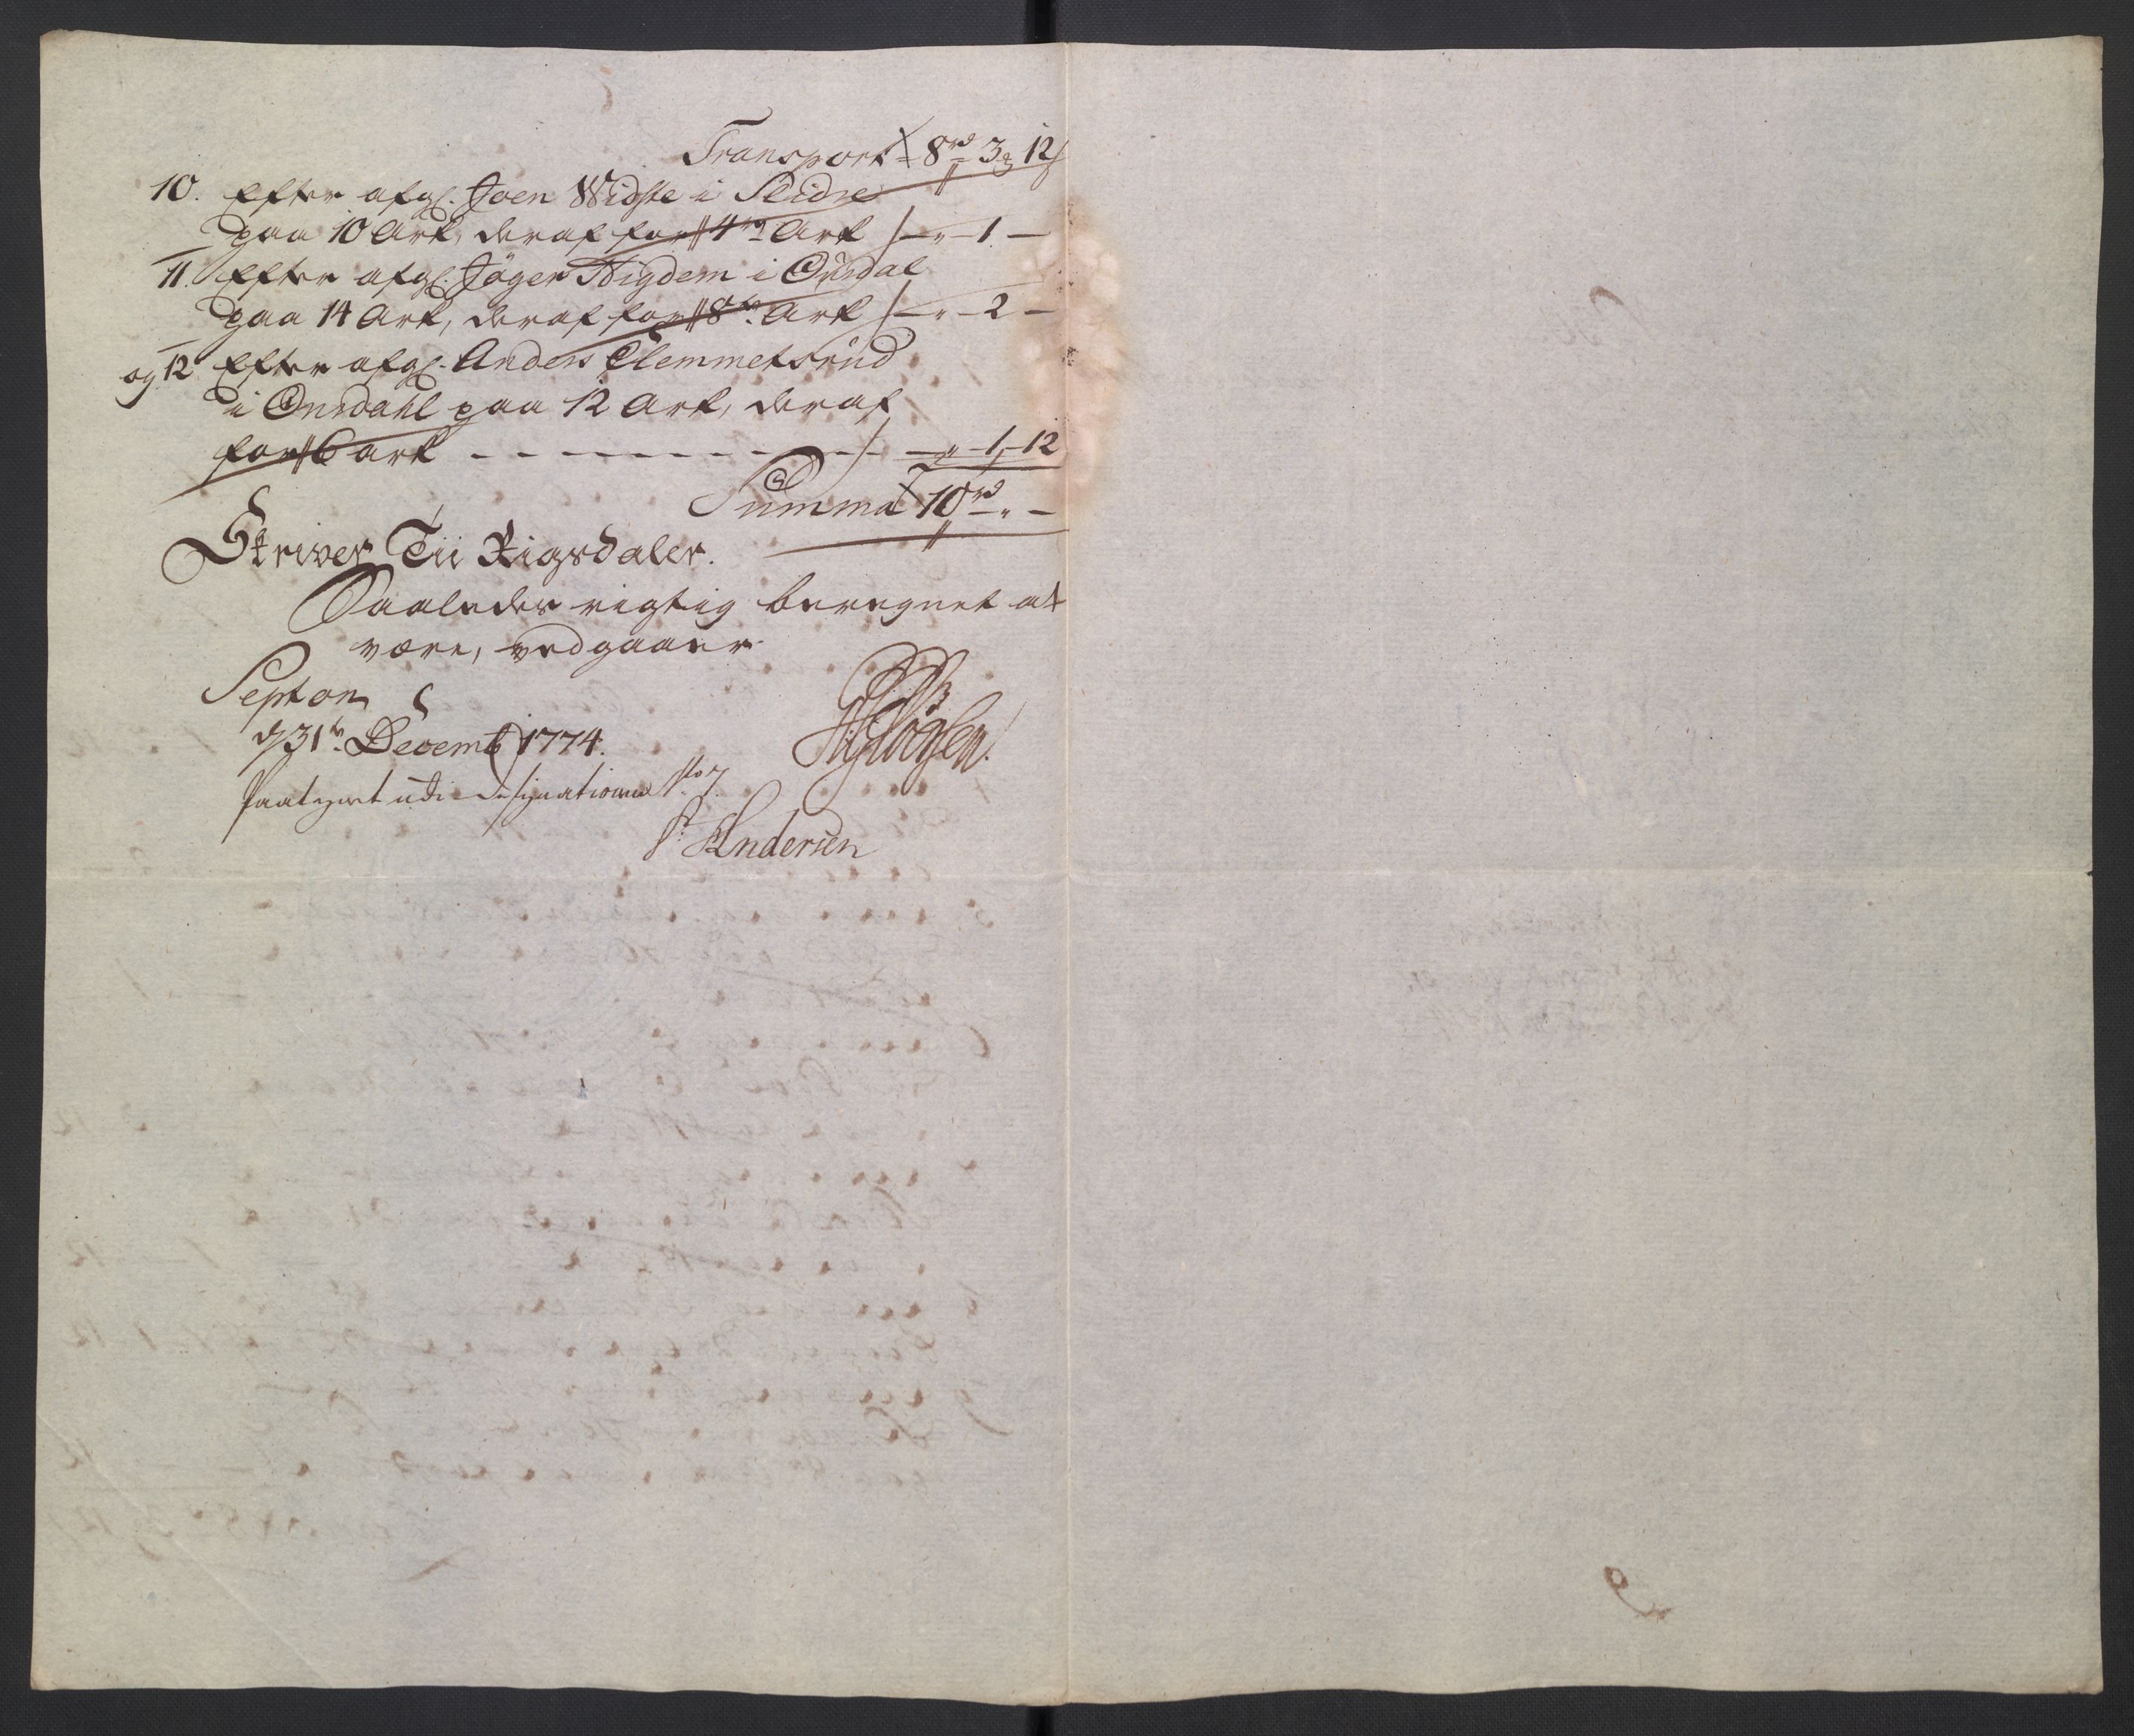 Transport 8 rd 3 12
10. Efter afgl. Joen Widste i Slidre
paa 10 Ark, deraf for 4re Ark — " — 1 —
11. Efter afgl. Jöger Nigdem i Ourdal
paa 14 Ark, deraf for 8te Ark — " — 2 —
og 12 Efter afgl. Anders Clemmetsrud
i Ourdahl paa 12 Ark, deraf
for 6 Ark — " — 1 — 12
Summa 10 rd — " —
Skriver Tii Rigsdaler.
Saaledes rigtig beregnet at
være, vedgaaer
d 31te Decemb 1774.
Paategnet udi designationen
Andersen